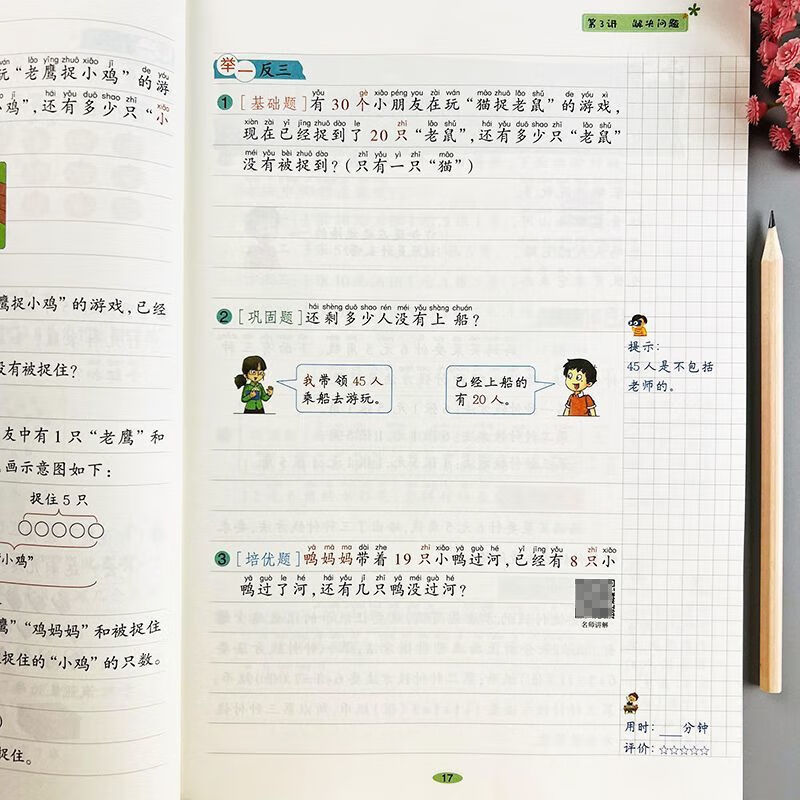 "老鹰捉小鸡"的游
小鸡",还有多少只"小
鹰捉小鸡"的游戏,已经
没有被捉住?
友中有1只"老鹰"和
画示意图如下:
捉住5只
小鸡"
鹰""鸡妈妈"和被捉住
捉住的"小鸡"的只数。
捉住。
第3讲 解决问题
举一反三
yǒu gè xiǎo péng you zài wán māo zhuō lǎo shǔ de yóu xì
1 [基础题]有30个小朋友在玩"猫捉老鼠"的游戏,
xiàn zài yǐ jīng zhuō dào le zhī lǎo shǔ hái yǒu duō shao zhī lǎo shǔ
现在已经捉到了20只"老鼠",还有多少只"老鼠"
méi yǒu bèi zhuō dào zhǐ yǒu yì zhī māo
没有被捉到?(只有一只"猫")
hái shèng duō shao rén méi yǒu shàng chuán
2 [巩固题]还剩多少人没有上船?
我带领45人
乘船去游玩。
已经上船的
有20人。
提示:
45人是不包括
老师的。
yā mā ma dài zhe zhī xiǎo yā guò hé yǐ jīng yǒu zhī xiǎo
3 [培优题]鸭妈妈带着19只小鸭过河,已经有8只小
yā guò le hé hái yǒu jǐ zhī yā méi guò hé
鸭过了河,还有几只鸭没过河?
名师讲解
用时:___分钟
评价:☆☆☆☆☆
17